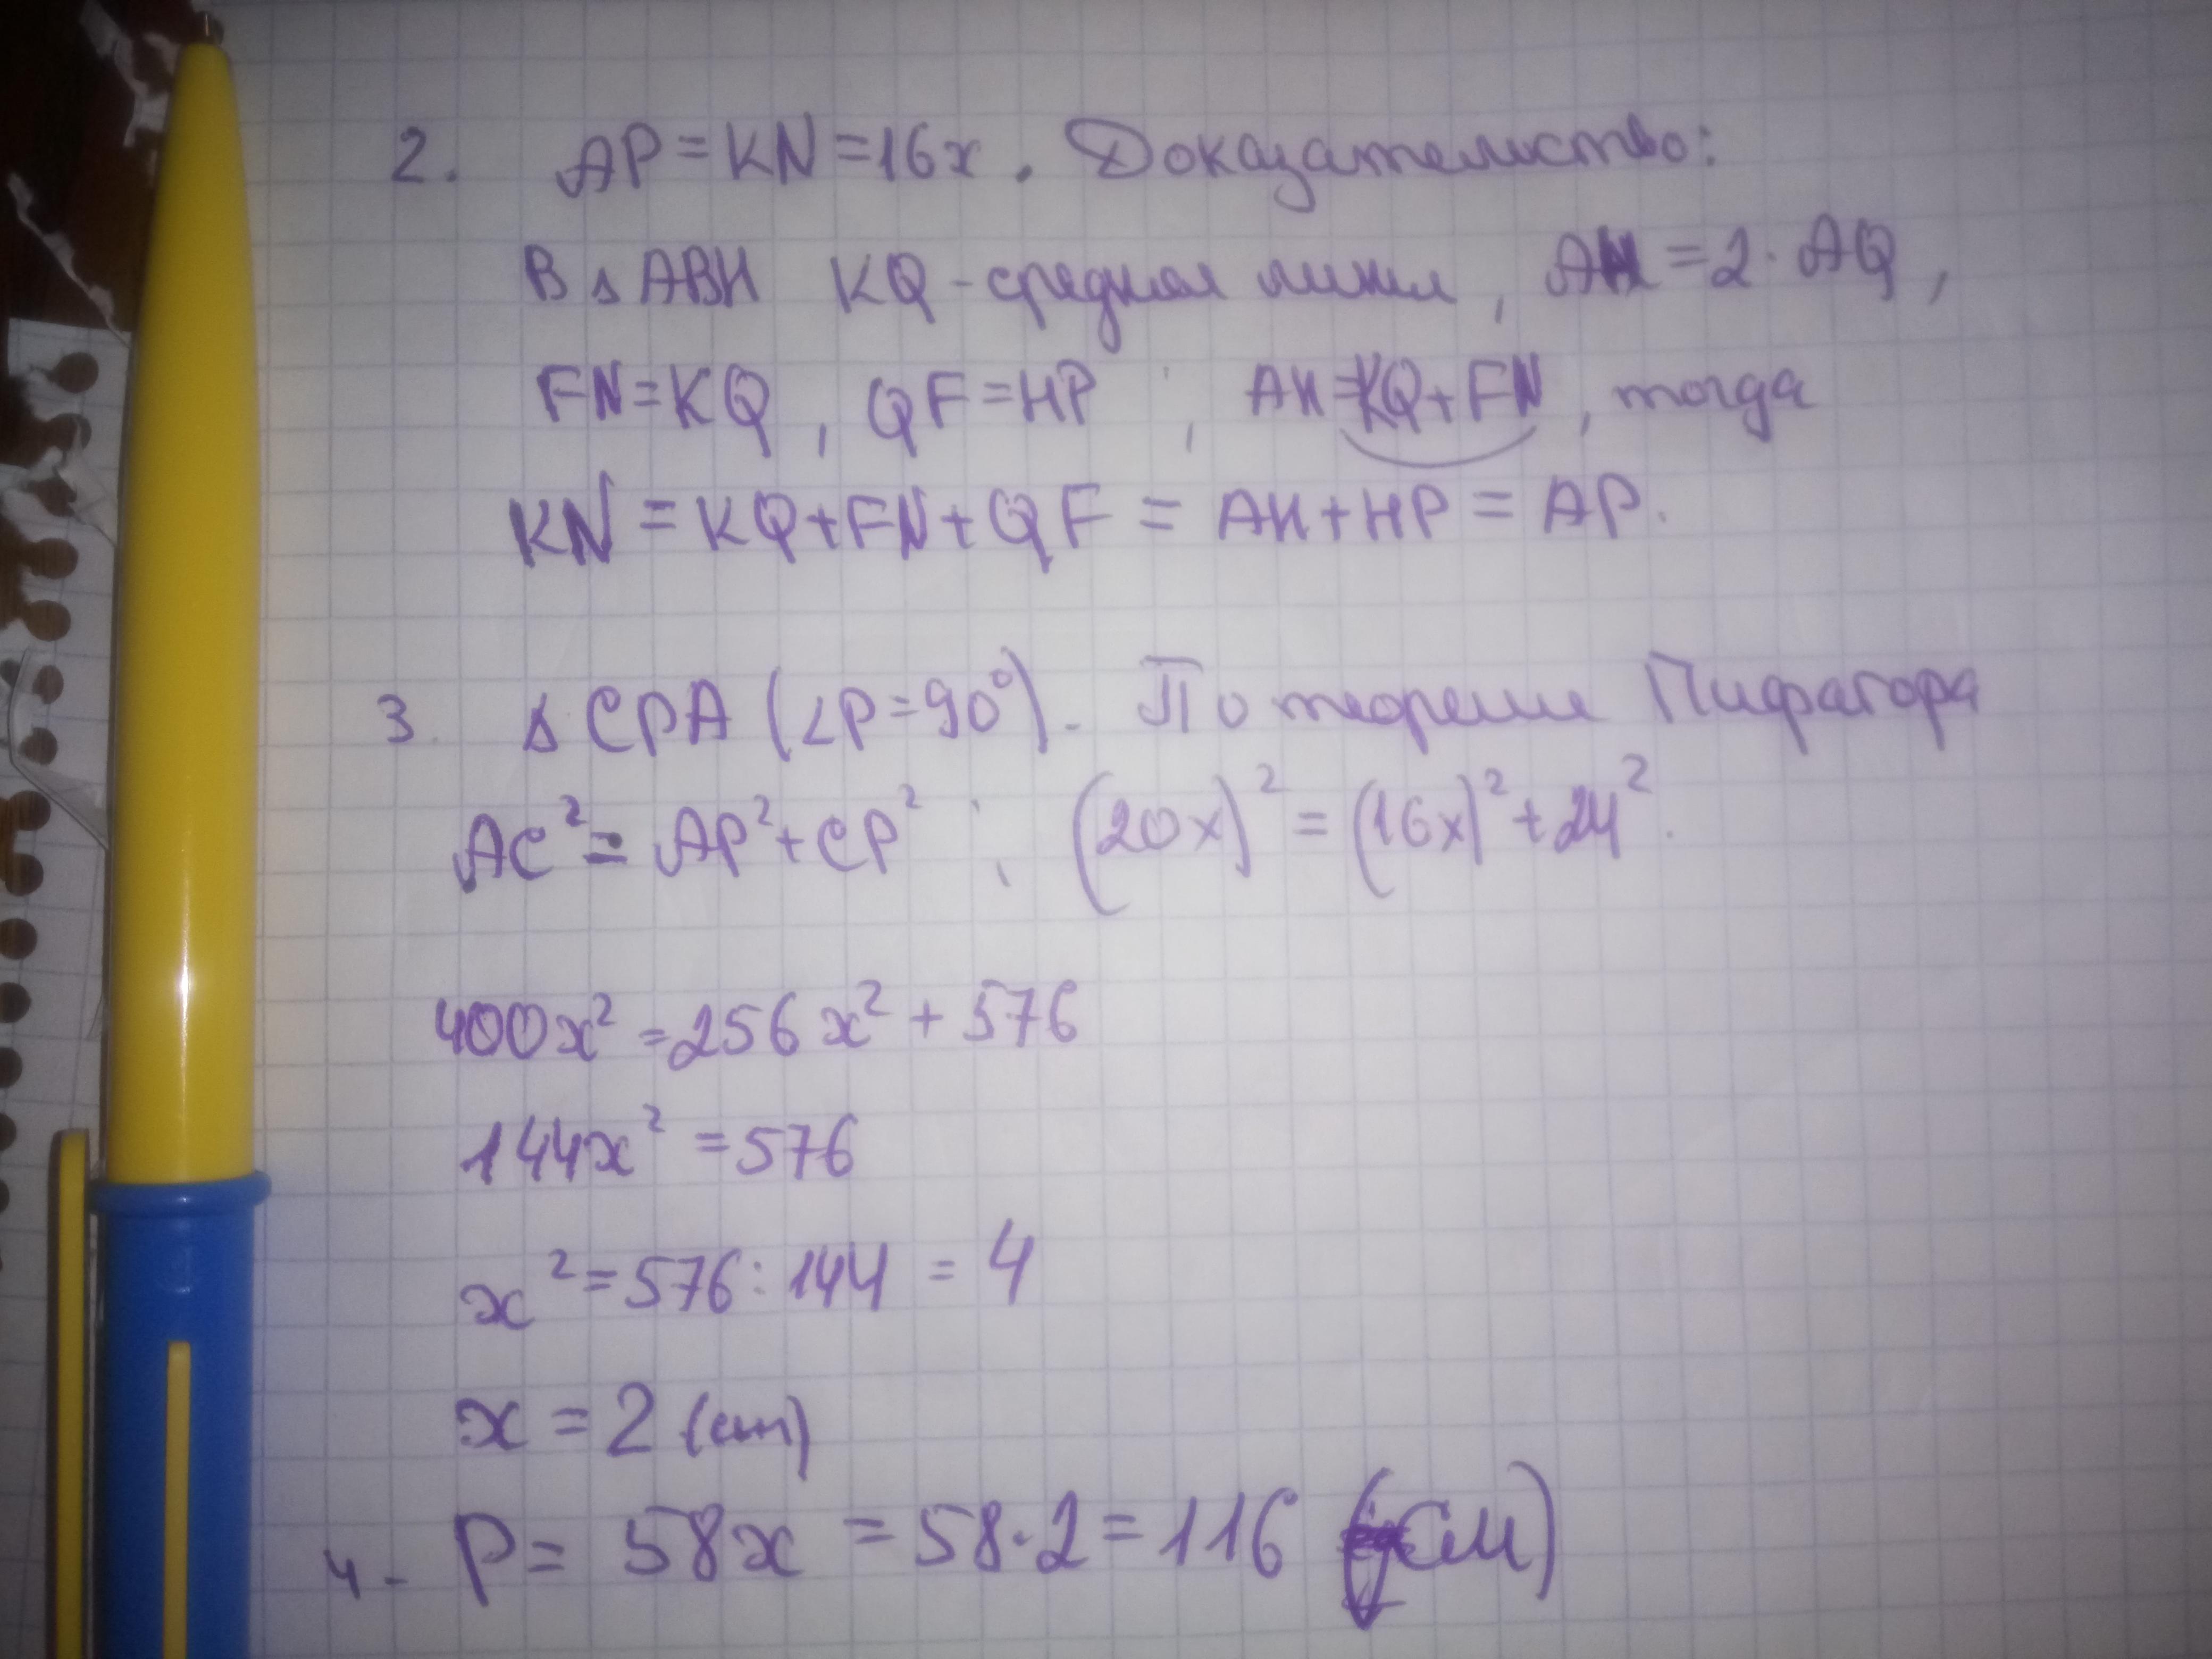 2. AP = KN = 16x. Доказательство:
В △ ABH KQ - средняя линия, AH = 2 · AQ,
FN = KQ, QF = HP; AH = KQ + FN, тогда
KN = KQ + FN + QF = AH + HP = AP.
3. △ CPA (∠P = 90°). По теореме Пифагора
AC² = AP² + CP²; (20x)² = (16x)² + 24².
400x² = 256x² + 576
144x² = 576
x² = 576 : 144 = 4
x = 2 (см)
4. P = 58x = 58 · 2 = 116 (см)